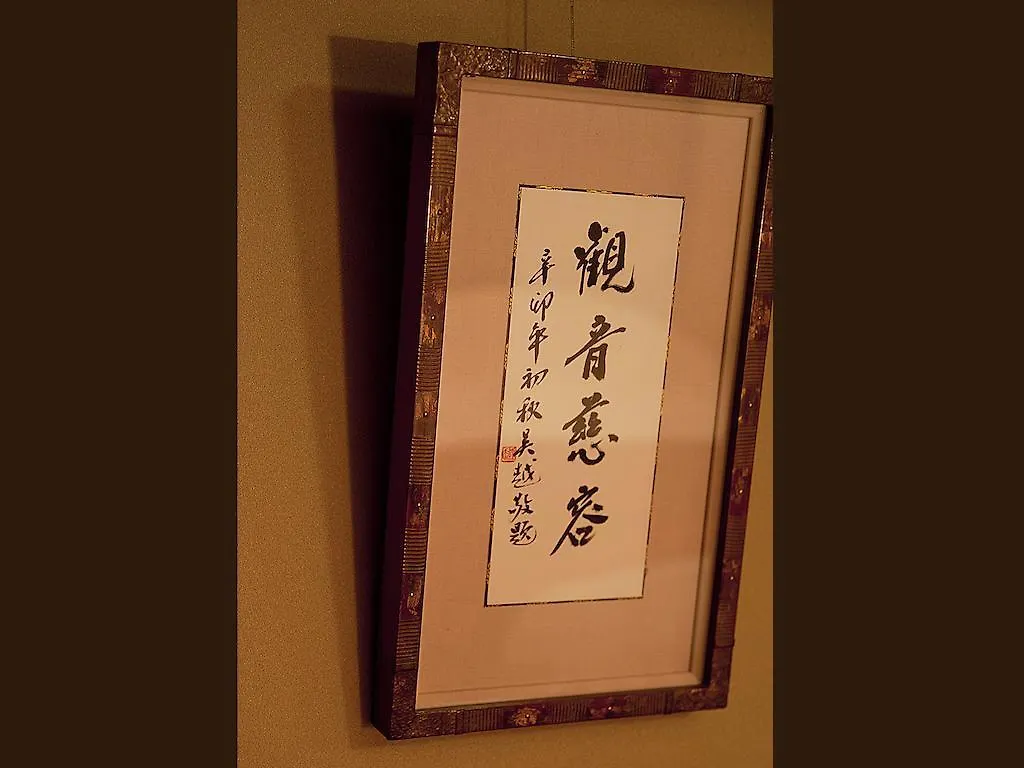 觀音慈容
辛卯年初秋吴越敬題